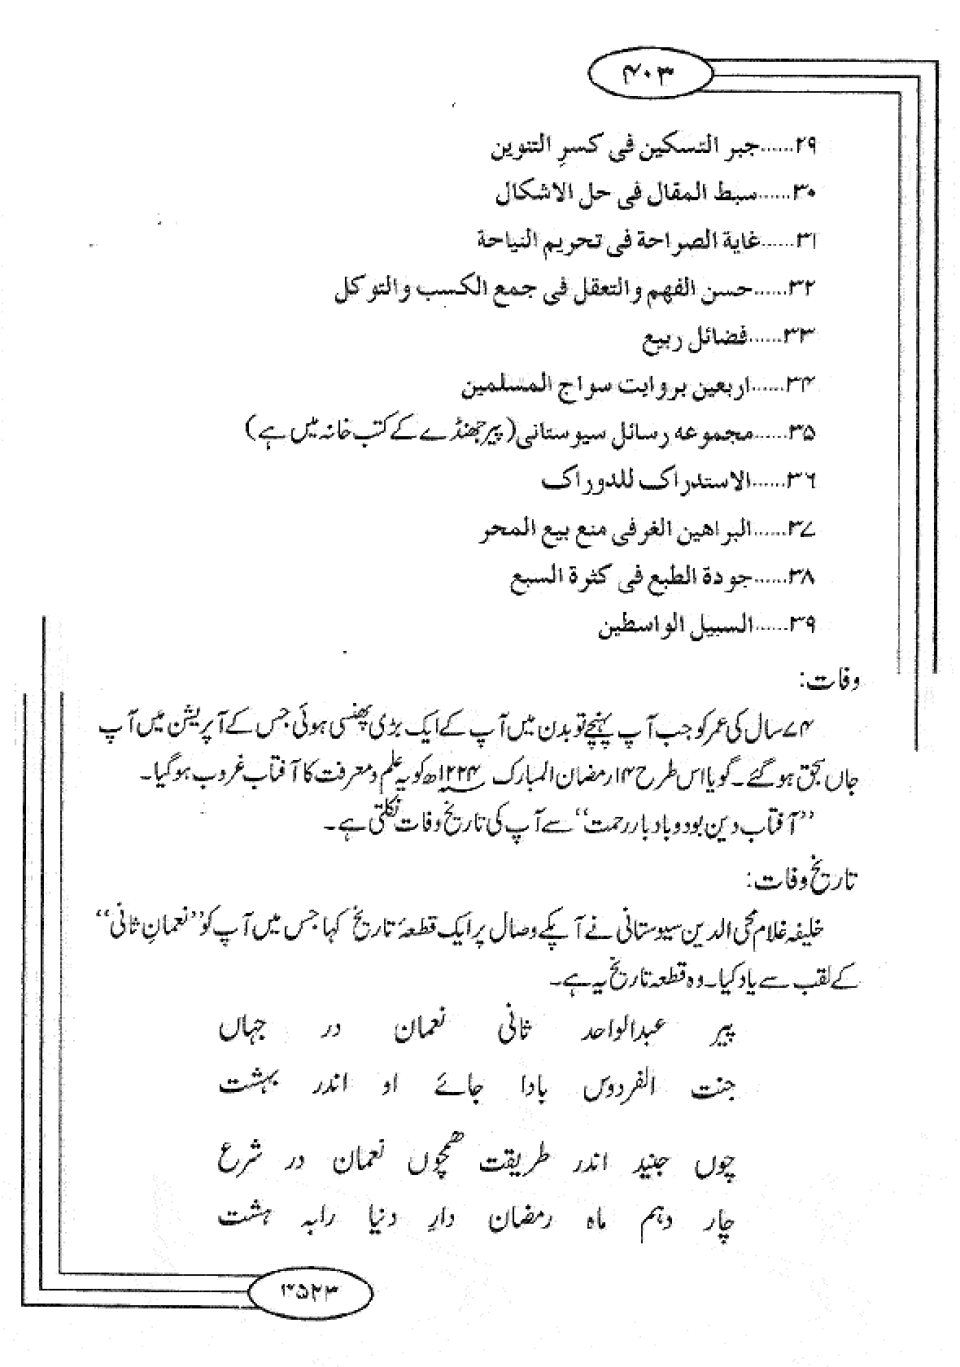 ۴۰۳
۲۹......جبر التسکین فی کسرِ التنوین
۳۰......سبط المقال فی حل الاشکال
۳۱......غایة الصراحة فی تحریم النیاحة
۳۲......حسن الفهم والتعقل فی جمع الکسب والتوکل
۳۳......فضائل ربیع
۳۴......اربعین بروایت سواج المسلمین
۳۵......مجموعه رسائل سیوستانی (پیر جھنڈے کے کتب خانہ میں ہے)
۳۶......الاستدراک للدوراک
۳۷......البراهین الغر فی منع بیع المحر
۳۸......جودة الطبع فی کثرة السبع
۳۹......السبیل الواسطین
وفات:
۷۴ سال کی عمر کو جب آپ پہنچے تو بدن میں آپ کے ایک بڑی پھنسی ہوئی جس کے آپریشن میں آپ
جاں بحق ہو گئے۔ گویا اس طرح ۱۴ رمضان المبارک ۱۲۲۴ھ کو یہ علم و معرفت کا آفتاب غروب ہو گیا۔
”آفتاب دین بود و بادبار رحمت“ سے آپ کی تاریخ وفات نکلتی ہے۔
تاریخ وفات:
خلیفہ غلام محی الدین سیوستانی نے آپکے وصال پر ایک قطعۂ تاریخ کہا جس میں آپ کو ”نعمانِ ثانی“
کے لقب سے یاد کیا۔ وہ قطعہ تاریخ یہ ہے۔
پیر عبدالواحد ثانی نعمان در جہاں
جنت الفردوس بادا جائے او اندر بہشت
چوں جنید اندر طریقت ہمچوں نعمان در شرع
چار دہم ماہ رمضان دارِ دنیا رابہ ہشت
۴۵۲۳